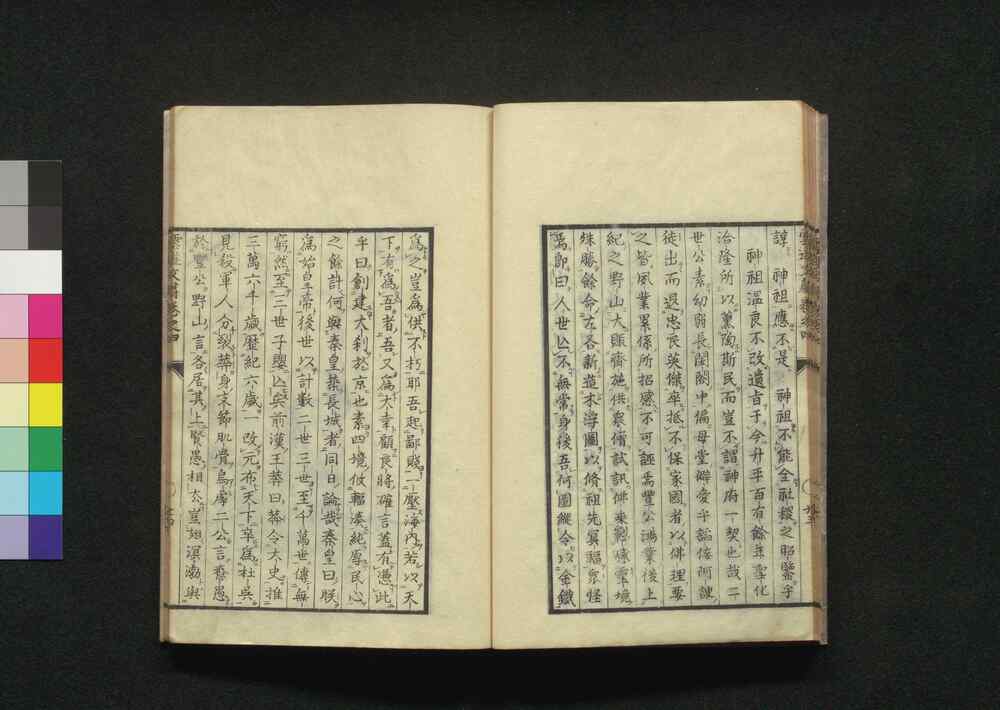 諄神祖應不是神祖不能全社稷之昭鑒乎
神祖溫良不改遺旨于今升平百有餘年聖化
洽隆所以薰陶斯民而豈不謂神府一契也哉二
世公素幼弱長閨閤中偏母堂僻愛平諂佞阿諛
徒出而退忠良英傑卒抵不保家國者以佛理要
之皆夙業累係所招感不可誣焉豐公鴻業後上
紀之野山大賑齋施供衆僧試訊佛乘
殊勝餘命左吝新造本浮圖以脩祖先冥福衆怪
焉即曰人世亡不無常身後吾何圖縱令以金鐵
爲之豈爲供不朽耶吾起鄙賤一壓海内若以天
下有爲吾者吾又爲大幸顧良將確言蓋有憑此
乎曰創建大刹於京也素四境仮輻湊純專民心
之餘計何與秦皇築長城者同日論哉秦皇曰朕
爲始皇帝後世以計數二世三世至千萬世傳無
窮然至三世子嬰亡矣前漢王莽曰莽令大史推
三萬六千歲歷紀六歲一改元布天下卒爲杜吳
見殺軍人分裂莽身支節肌骨烏虖二公言愚
於豐公野山言各居其上賢愚相去豈翅溟渤與